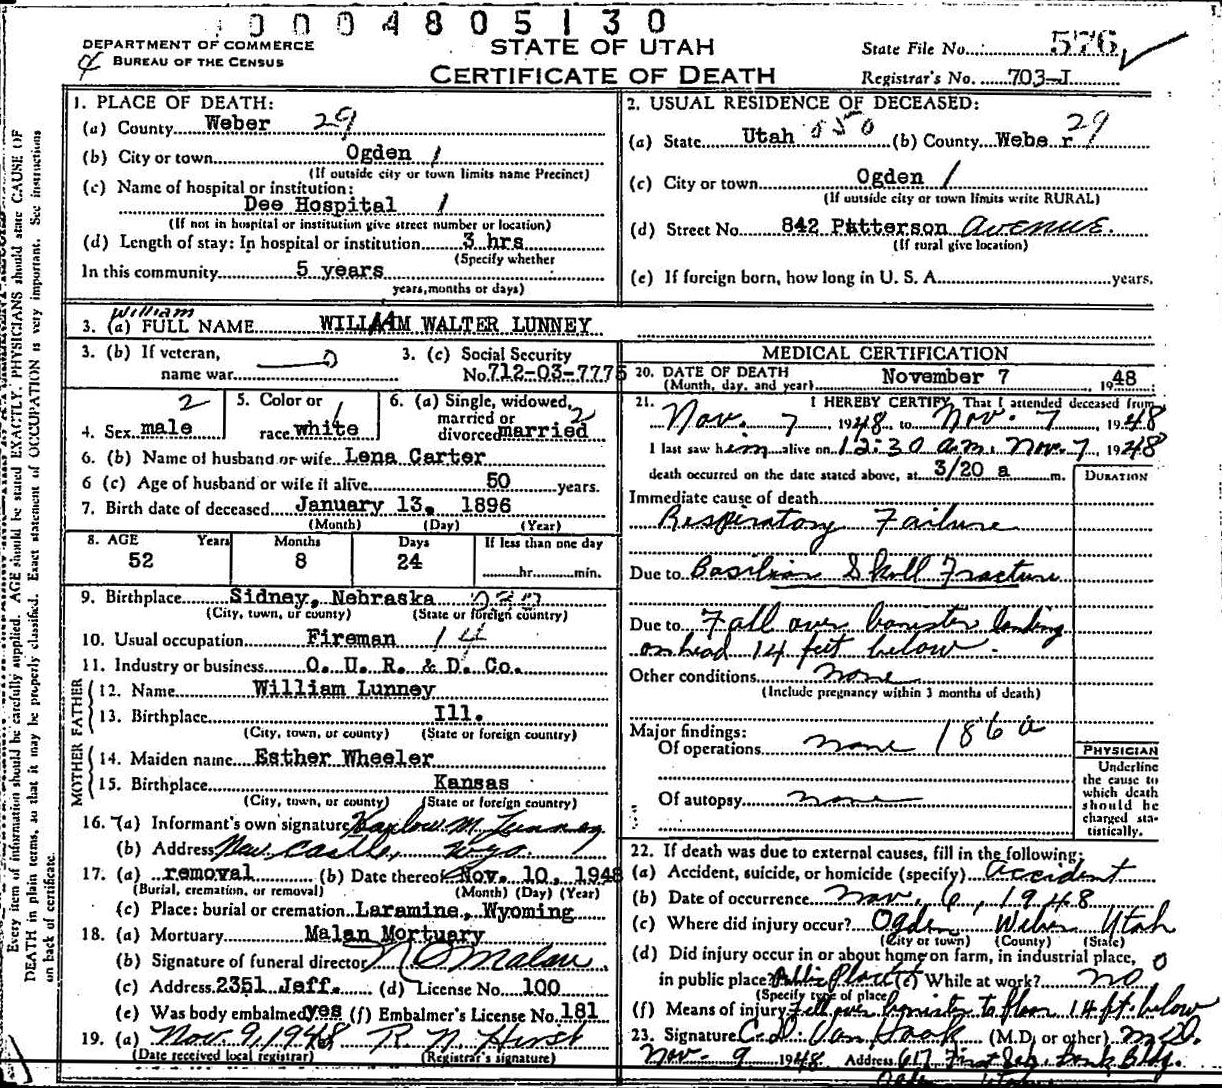 0004805130
DEPARTMENT OF COMMERCE
BUREAU OF THE CENSUS
STATE OF UTAH
CERTIFICATE OF DEATH
State File No. 576
Registrar's No. 703-J
1. PLACE OF DEATH:
(a) County Weber 29
(b) City or town Ogden 1
(If outside city or town limits name Precinct)
(c) Name of hospital or institution:
Dee Hospital 1
(If not in hospital or institution give street number or location)
(d) Length of stay: In hospital or institution 3 hrs
(Specify whether
In this community 5 years
years, months or days)
2. USUAL RESIDENCE OF DECEASED:
(a) State Utah 050 (b) County Weber 29
(c) City or town Ogden 1
(If outside city or town limits write RURAL)
(d) Street No. 842 Patterson AVENUE.
(If rural give location)
(e) If foreign born, how long in U. S. A. years.
William
3. (a) FULL NAME WILLIAM WALTER LUNNEY
3. (b) If veteran,
name war
3. (c) Social Security
No. 712-03-7775
4. Sex male 2
5. Color or
race white 1
6. (a) Single, widowed,
married or 2
divorced married
6. (b) Name of husband or wife Lena Carter
6 (c) Age of husband or wife if alive 50 years.
7. Birth date of deceased January 13, 1896
(Month) (Day) (Year)
8. AGE Years Months Days If less than one day
52 8 24 hr. min.
9. Birthplace Sidney, Nebraska
(City, town, or county) (State or foreign country)
10. Usual occupation Fireman 14
11. Industry or business O. U. R. & D. Co.
FATHER
12. Name William Lunney
13. Birthplace Ill.
(City, town, or county) (State or foreign country)
MOTHER
14. Maiden name Esther Wheeler
15. Birthplace Kansas
(City, town, or county) (State or foreign country)
16. (a) Informant's own signature Harlow M. Lunney
(b) Address New Castle, Wyo.
17. (a) removal (b) Date thereof Nov. 10, 1948
(Burial, cremation, or removal) (Month) (Day) (Year)
(c) Place: burial or cremation Laramine, Wyoming
18. (a) Mortuary Malan Mortuary
(b) Signature of funeral director Malan
(c) Address 2351 Jeff. (d) License No. 100
(e) Was body embalmed yes (f) Embalmer's License No. 181
19. (a) Nov 9, 1948 R N Hirst
(Date received local registrar) (Registrar's signature)
MEDICAL CERTIFICATION
20. DATE OF DEATH
(Month, day, and year) November 7 1948
21. I HEREBY CERTIFY, That I attended deceased from
Nov. 7 1948 to Nov. 7 1948
I last saw him alive on 12:30 a.m. Nov. 7, 1948
death occurred on the date stated above, at 3/20 a m.
DURATION
Immediate cause of death
Respiratory Failure
Due to Basilian Skull Fracture
Due to Fall over banister landing
on head 14 feet below.
Other conditions none
(Include pregnancy within 3 months of death)
Major findings:
Of operations none 186a
Of autopsy none
PHYSICIAN
Underline
the cause to
which death
should be
charged sta-
tistically.
22. If death was due to external causes, fill in the following:
(a) Accident, suicide, or homicide (specify) Accident
(b) Date of occurrence Nov. 6, 1948
(c) Where did injury occur? Ogden Weber Utah
(City or town) (County) (State)
(d) Did injury occur in or about home, on farm, in industrial place, 0
in public place? Public Place (e) While at work? no
(Specify type of place
(f) Means of injury Fell over banister to floor 14 ft. below
23. Signature C. D. Van Hook (M.D. or other) M.D.
Nov. 9 1948 Address 617 First Sec. Bank Bldg.
Ogden Utah
Every item of information should be carefully supplied. AGE should be stated EXACTLY. PHYSICIANS should state CAUSE OF
DEATH in plain terms, so that it may be properly classified. Exact statement of OCCUPATION is very important. See instructions
on back of certificate.